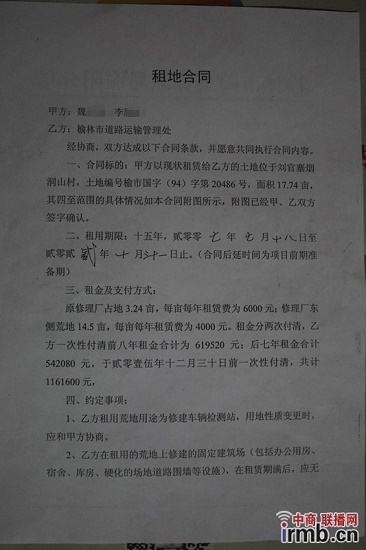 租地合同
甲方：魏 李
乙方：榆林市道路运输管理处
经协商，双方达成以下合同条款，并愿意共同执行合同内容。
一、合同标的：甲方以现状租赁给乙方的土地位于刘官寨烟
洞山村，土地编号榆市国字（94）字第 20486 号，面积 17.74 亩，
其四至范围的具体情况如本合同附图所示，附图已经甲、乙双方
签字确认。
二、租用期限：十五年，贰零零 七 年 七 月 十八 日至
贰零贰 贰 年 十 月 三十一 日止。（合同后延时间为项目前期准
备期）
三、租金及支付方式：
原修理厂占地 3.24 亩，每亩每年租赁费为 6000 元；修理厂东
侧荒地 14.5 亩，每亩每年租赁费为 4000 元。租金分两次付清，乙
方一次性付清前八年租金合计为 619520 元；后七年租金合计
542080 元，于贰零壹伍年十二月三十日前一次性付清，共计
1161600 元，
四、约定事项：
1、乙方租用荒地用途为修建车辆检测站，用地性质变更时，
应和甲方协商。
2、乙方在租用的荒地上修建的固定建筑场（包括办公用房、
宿舍、库房、硬化的场地道路围墙等设施），在租赁期满后，应无
中商 联播网
irmb.cn